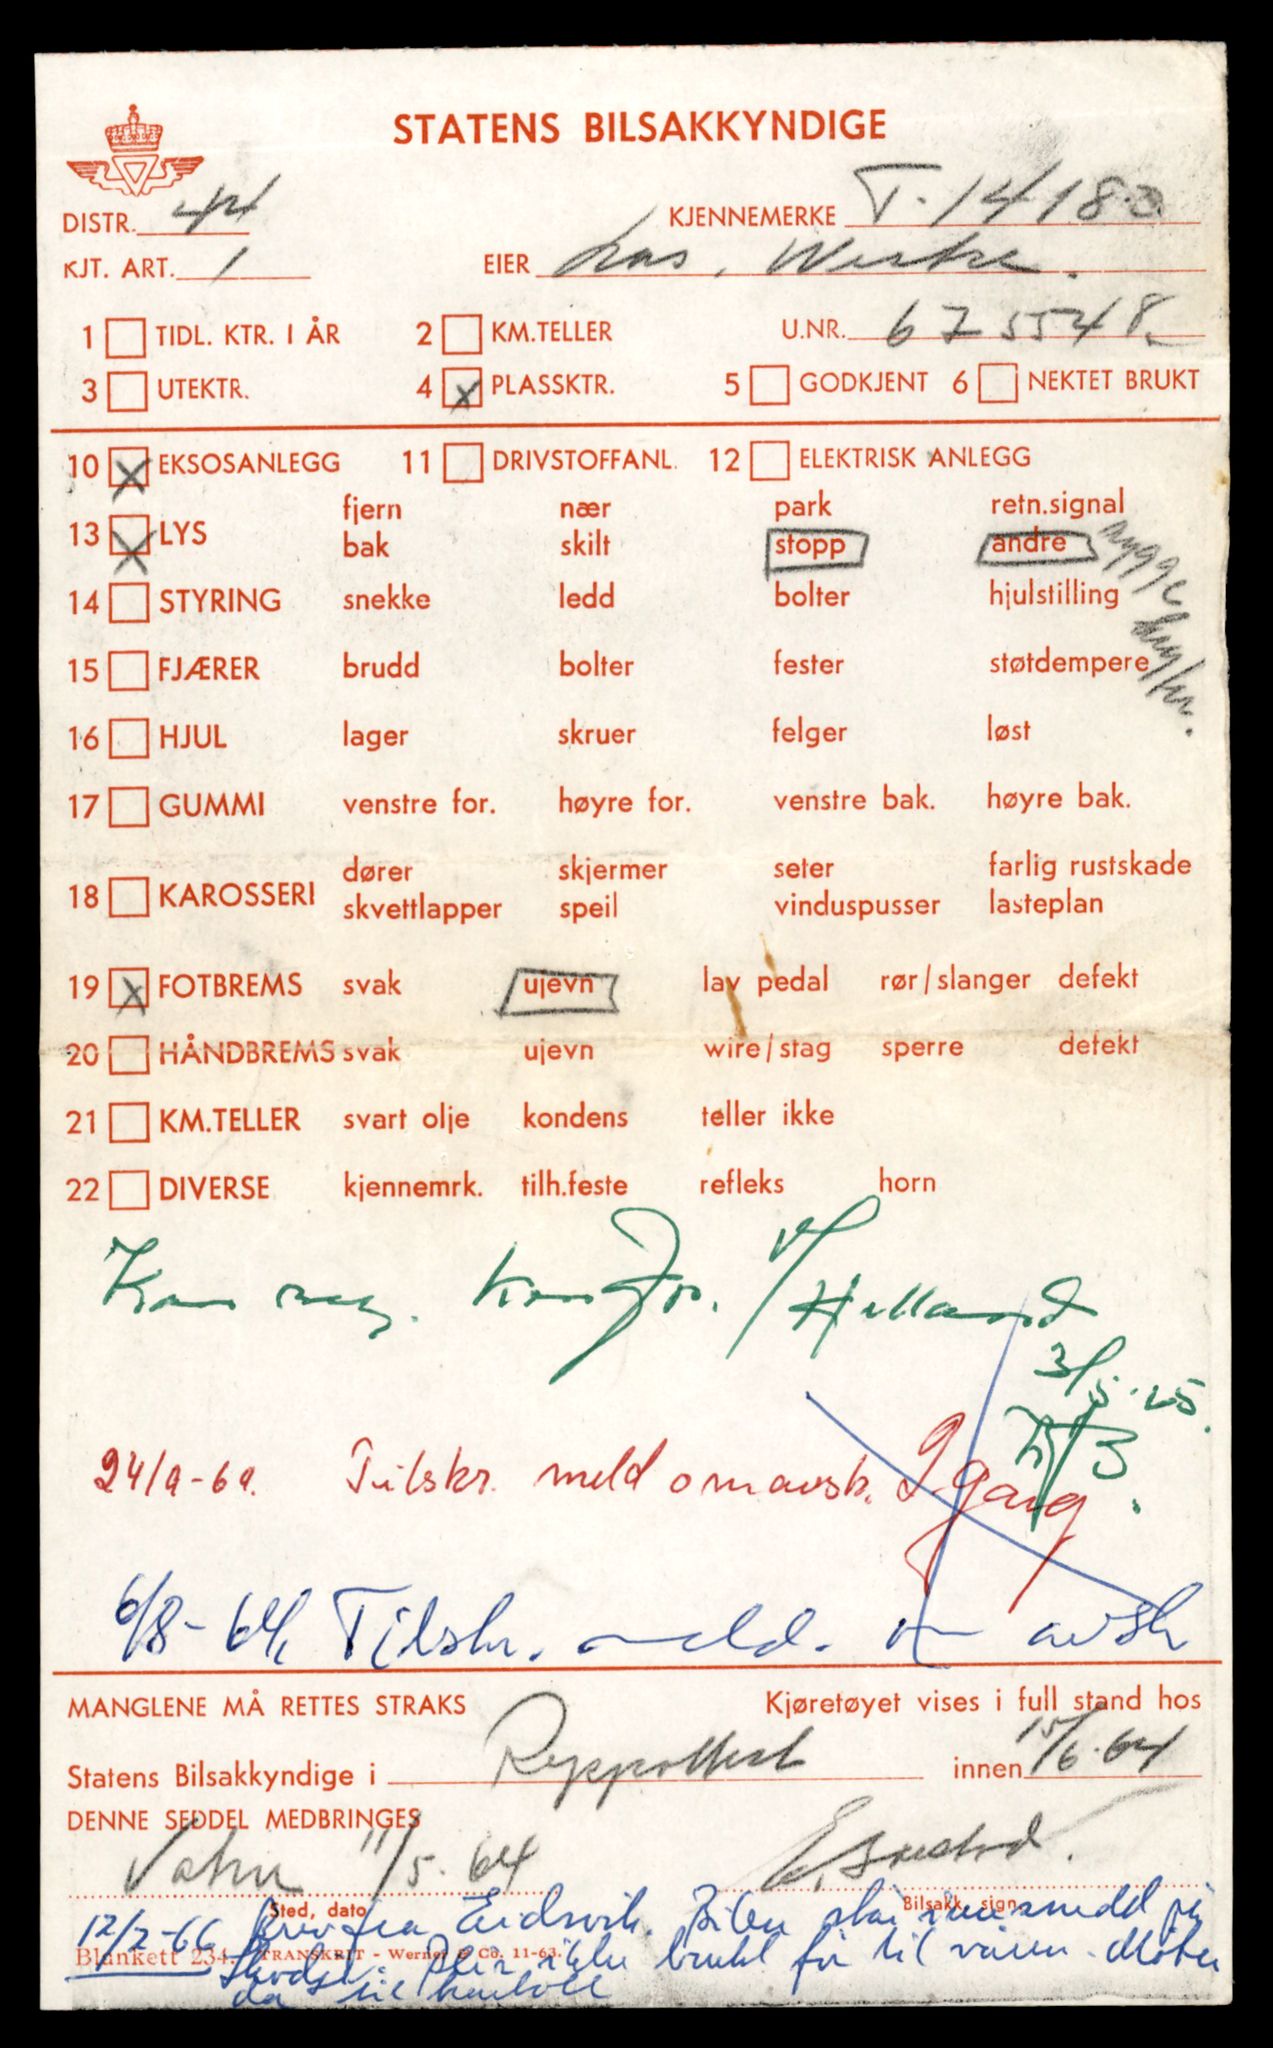 STATENS BILSAKKYNDIGE
DISTR. 44 KJENNEMERKE T-14183
KJT. ART. 1 EIER
1 TIDL. KTR. I ÅR 2 KM.TELLER U.NR. 675548
3 UTEKTR. 4 x PLASSKTR. 5 GODKJENT 6 NEKTET BRUKT
10 X EKSOSANLEGG 11 DRIVSTOFFANL. 12 ELEKTRISK ANLEGG
fjern nær park retn.signal
13 X LYS bak skilt stopp andre rygge
14 STYRING snekke ledd bolter hjulstilling
15 FJÆRER brudd bolter fester støtdempere
16 HJUL lager skruer felger løst
17 GUMMI venstre for. høyre for. venstre bak. høyre bak.
dører skjermer seter farlig rustskade
18 KAROSSERI skvettlapper speil vinduspusser lasteplan
19 x FOTBREMS svak ujevn lav pedal rør/slanger defekt
20 HÅNDBREMS svak ujevn wire/stag sperre defekt
21 KM.TELLER svart olje kondens teller ikke
22 DIVERSE kjennemrk. tilh.feste refleks horn
Hilland
Tilskr. meld om avsk. 2. gang.
6/8-64 Tilskr. meld. om avsk
MANGLENE MÅ RETTES STRAKS Kjøretøyet vises i full stand hos
Statens Bilsakkyndige i innen 15/6-64
DENNE SEDDEL MEDBRINGES
Vatne 11/5-64
Sted, dato Bilsakk. sign.
12/2-66 Brev fra Eidsvik. Bilen står innesnødd på
Blankett 234. TRANSKRIT - Werner & Co. 11-63.
Blir ikke brukt før til våren. Møter
da til kontroll